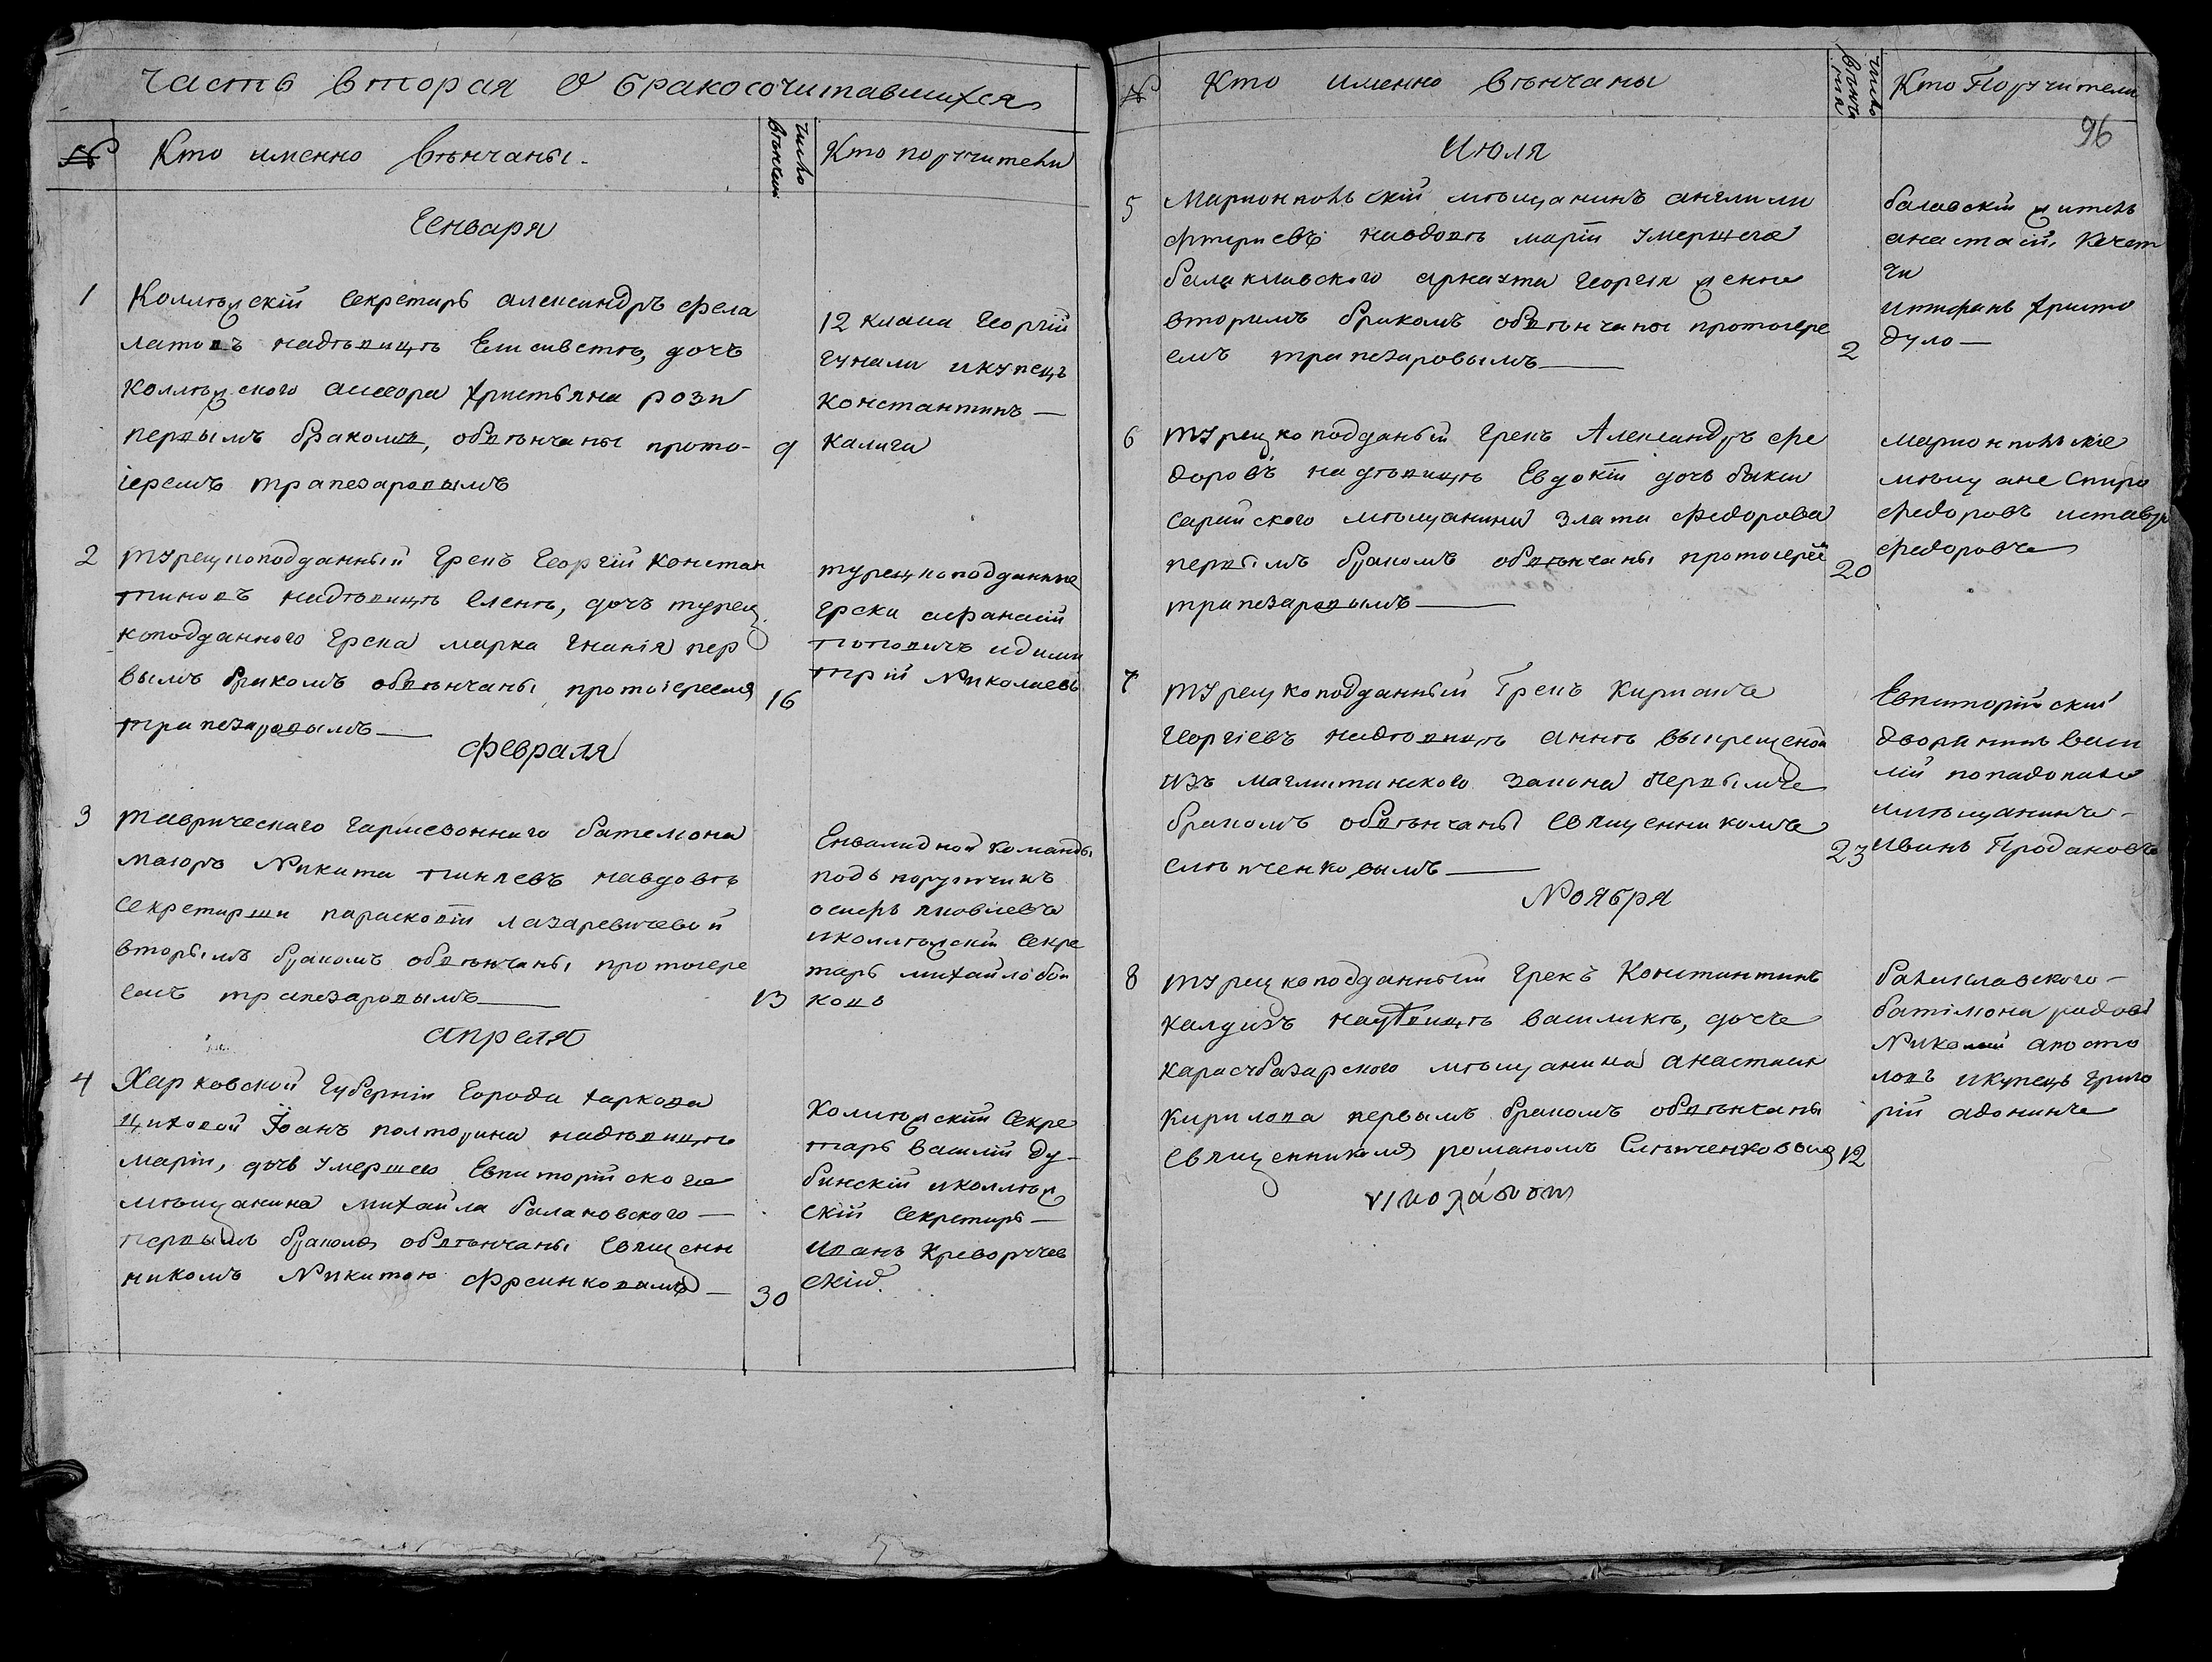 Часть вторая О бракосочитавшихся
№ Кто именно вѣнчаны. число вѣнчаній Кто поручители
Генваря
1 Коллѣжскій секретарь александръ фела
латовъ надѣвицѣ Елисаветѣ, дочь
коллѣжского ассесора христьяна рози
первымъ бракомъ, обвѣнчаны прото-
іереемъ трапезаровымъ
9
12 класа Георгій
гунали икупецъ
константинъ —
калига
2 турецкоподданный грекъ Георгій констан
тиновъ надѣвицѣ еленѣ, дочь турец
коподданного грека марка гнанія пер
вымъ бракомъ обвѣнчаны протоіереемъ
трапезаровымъ —
16
турецкоподданные
греки афанасій
поповичъ идими
трій Николаевъ
февраля
3 таврическаго гарнезоннаго бателиона
маіоръ Никита пинпевъ навдовѣ
секретарши параскевіи лазаревичевой
вторымъ бракомъ обвѣнчаны протоіере
емъ трапезаровымъ —
13
Енвалидной команды
подъ порутчикъ
осифъ яковлевъ
иколлѣжскій секре
тарь михайло бой
ковъ
апреля
4 Харковской губерніи города харкова
цеховой Іоанъ полторина надѣвицѣ
маріи, дочь умершего Евпаторійского
мѣщанина михайла балановского —
первымъ бракомъ обвѣнчаны священн
никомъ Никитою Фрсинковымъ —
30
Колиѣжскій секре
тарь василій ду-
бинскій иколлѣж
скій секретарь —
иванъ Креворучев
скій.
№ Кто именно вѣнчаны число вѣнчания Кто Поручители
96
Июля
5 Мариопольскій мѣщанинъ ангели
фтериевъ навдовѣ маріи умершего
балаклавского арнаута георгія жене
вторымъ бракомъ обвѣнчаны протоіере
емъ трапезаровымъ —
2
балавскій житель
анастасій, Качет
чи
истефанъ христо
дуло —
6 турецкоподданый грекъ Александръ фе
доровъ надѣвицѣ Евдокіи дочь бакчи
сарайского мѣщанина злати федорова
первымъ бракомъ обвѣнчаны протоіерей
трапезаровымъ —
20
мариопольскіе
мѣщане спиро
федоровъ иставр
федоровъ
7 турецкоподданный Грекъ кириакъ
георгіевъ надѣвицѣ аннѣ выкрещеной
изъ магметанского закона первымъ
бракомъ обвѣнчаны священникомъ
слѣпченковымъ —
23
Евпаторійский
дворянинъ васи
лій попадопаль
имѣщанинъ -
иванъ Продановъ
Ноября
8 турецкоподданный грекъ Константинъ
халдизъ надѣвицѣ василикѣ, дочь
карасубазарского мѣщанина анастаси
кирилова первымъ бракомъ обвѣнчаны
священникомъ романомъ Слѣпченковым
12
балаклавского —
батліона рядовй
Николай апосто
ловъ икупецъ григо
рій адонинъ
νικολάου